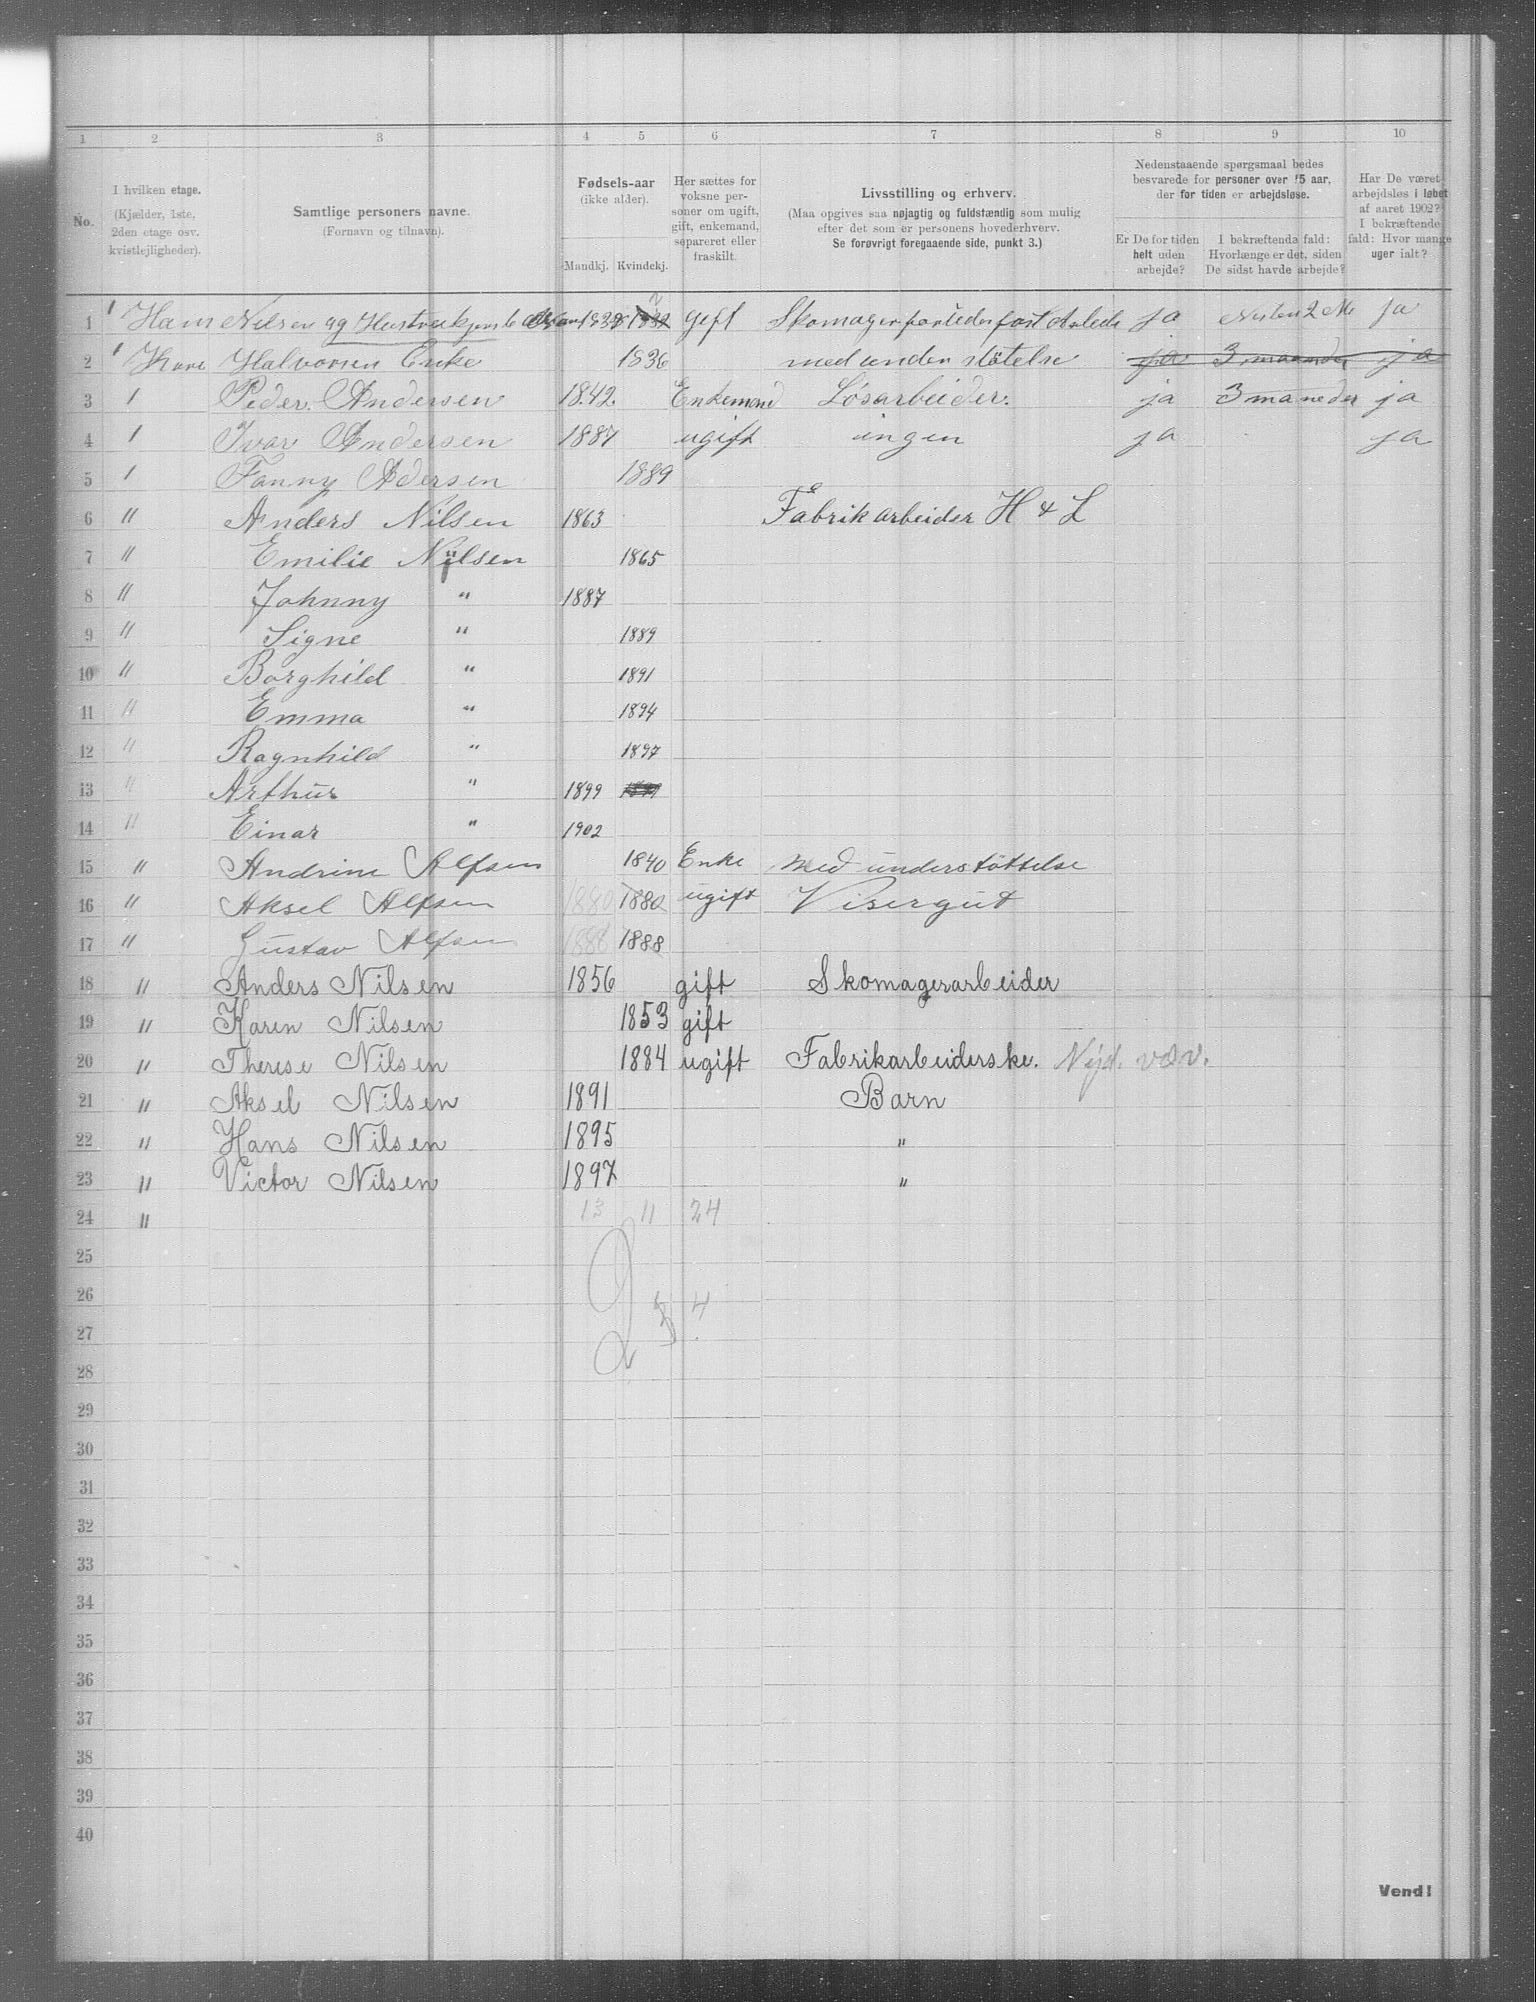 1 2 3 4 5 6 7 8 9 10
No.
I hvilken etage.
(Kjælder, 1ste,
2den etage osv.
kvistlejligheder).
Samtlige personers navne.
(Fornavn og tilnavn).
Fødsels-aar
(ikke alder).
Mandkj. Kvindekj.
Her sættes for
voksne per-
soner om ugift,
gift, enkemand,
separeret eller
fraskilt.
Livsstilling og erhverv.
(Maa opgives saa nøjagtig og fuldstændig som mulig
efter det som er personens hovederhverv.
Se forøvrigt foregaaende side, punkt 3.)
Nedenstaaende spørgsmaal bedes
besvarede for personer over 15 aar,
der for tiden er arbejdsløse.
Er De for tiden
helt uden
arbejde?
I bekræftende fald:
Hvorlænge er det, siden
De sidst havde arbejde?
Har De været
arbejdsløs i løbet
af aaret 1902?
I bekræftende
fald: Hvor mange
uger ialt?
1 1 Hans Nilsen og Hustru gift Skomager ja 2 M ja
2 1 Kari Halvorsen Enke 1836 med understøtelse ja 3 maaneder ja
3 1 Peder Andersen 1842. Enkemand Løsarbeider. ja 3 maneder ja
4 1 Ivar Andersen 1887 ugift ingen ja ja
5 1 Fanny Adersen 1889
6 " Anders Nilsen 1863 Fabrikarbeider H & L
7 " Emilie Nilsen 1865
8 " Johnny " 1887
9 " Signe " 1889
10 " Borghild " 1891
11 " Emma " 1894
12 " Ragnhild " 1897
13 " Arthur " 1899 1899
14 " Einar " 1902
15 " Andrine Alfsen 1840 Enke med understöttelse
16 " Aksel Alfsen 1880 1880 ugift Visergut
17 " Gustav Alfsen 1888 1888
18 " Anders Nilsen 1856 gift Skomagerarbeider
19 " Karen Nilsen 1853 gift
20 " Therese Nilsen 1884 ugift Fabrikarbeiderske.
21 " Aksel Nilsen 1891 Barn
22 " Hans Nilsen 1895 "
23 " Victor Nilsen 1897 "
24 " 13 11 24
25
26 4
27
28
29
30
31
32
33
34
35
36
37
38
39
40
Vend!